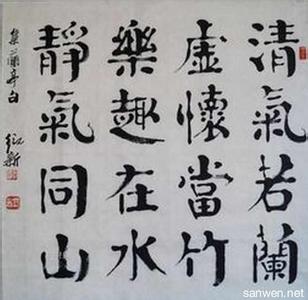 清氣若蘭
虛懷當竹
樂趣在水
靜氣同山
集蘭亭
sanwen.net